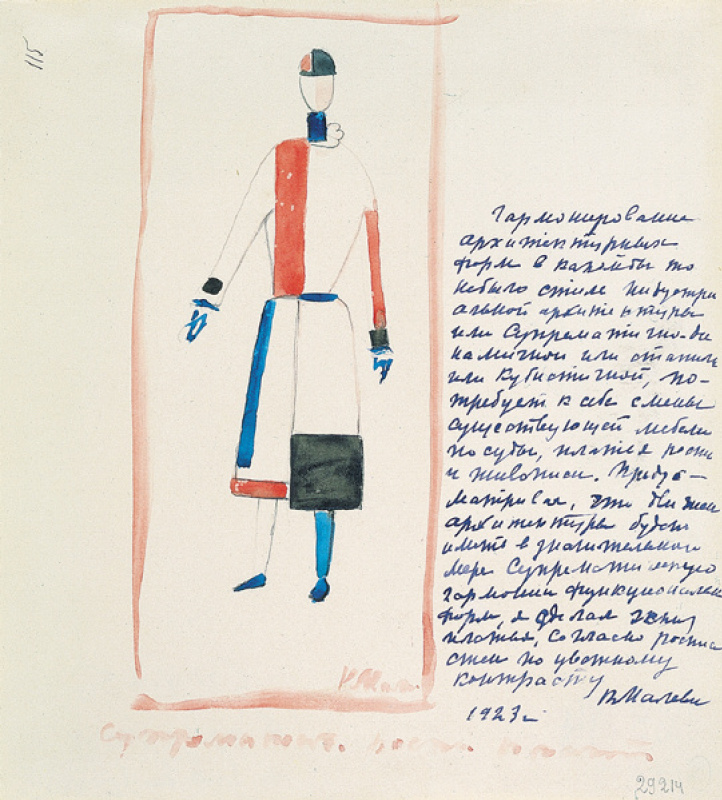 115
Гармонирование
архитектурных
форм в какой бы то
небыло стиле индустри
альной архитектуры
или Супрематично-ди
намичной или статич
или Кубистичной, по-
требует к себе смены
существующей мебели
посуды, платья росписи
и живописи. Преду-
матривая, что движен
архитектуры будет
иметь в значительной
мере Супрематическую
гармонии функциональн
форм, я сделал эскиз
платья, согласно росписи
стен по цветному
контрасту
КМалеви
1923 г
КМал.
Супрематич.
29214